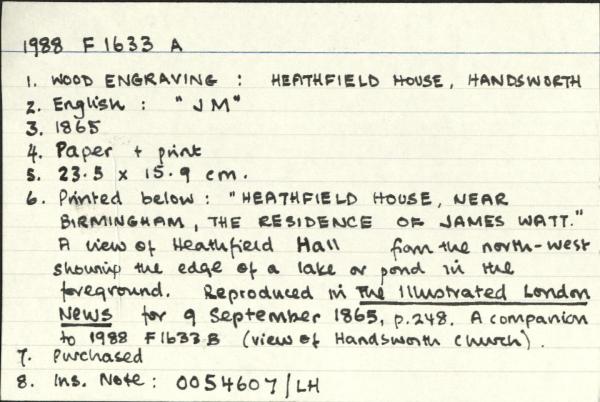 1988 F1633 A
1. WOOD ENGRAVING : HEATHFIELD HOUSE, HANDSWORTH
2. English : "JM"
3. 1865
4. Paper + print
5. 23.5 x 15.9 cm.
6. Printed below : "HEATHFIELD HOUSE, NEAR
BIRMINGHAM, THE RESIDENCE OF JAMES WATT."
A view of Heathfield Hall from the north-west
showing the edge of a lake or pond in the
foreground. Reproduced in The Illustrated London
News for 9 September 1865, p.248. A companion
to 1988 F1633 B (view of Handsworth church).
7. Purchased
8. Ins. Note : 0054607/LH